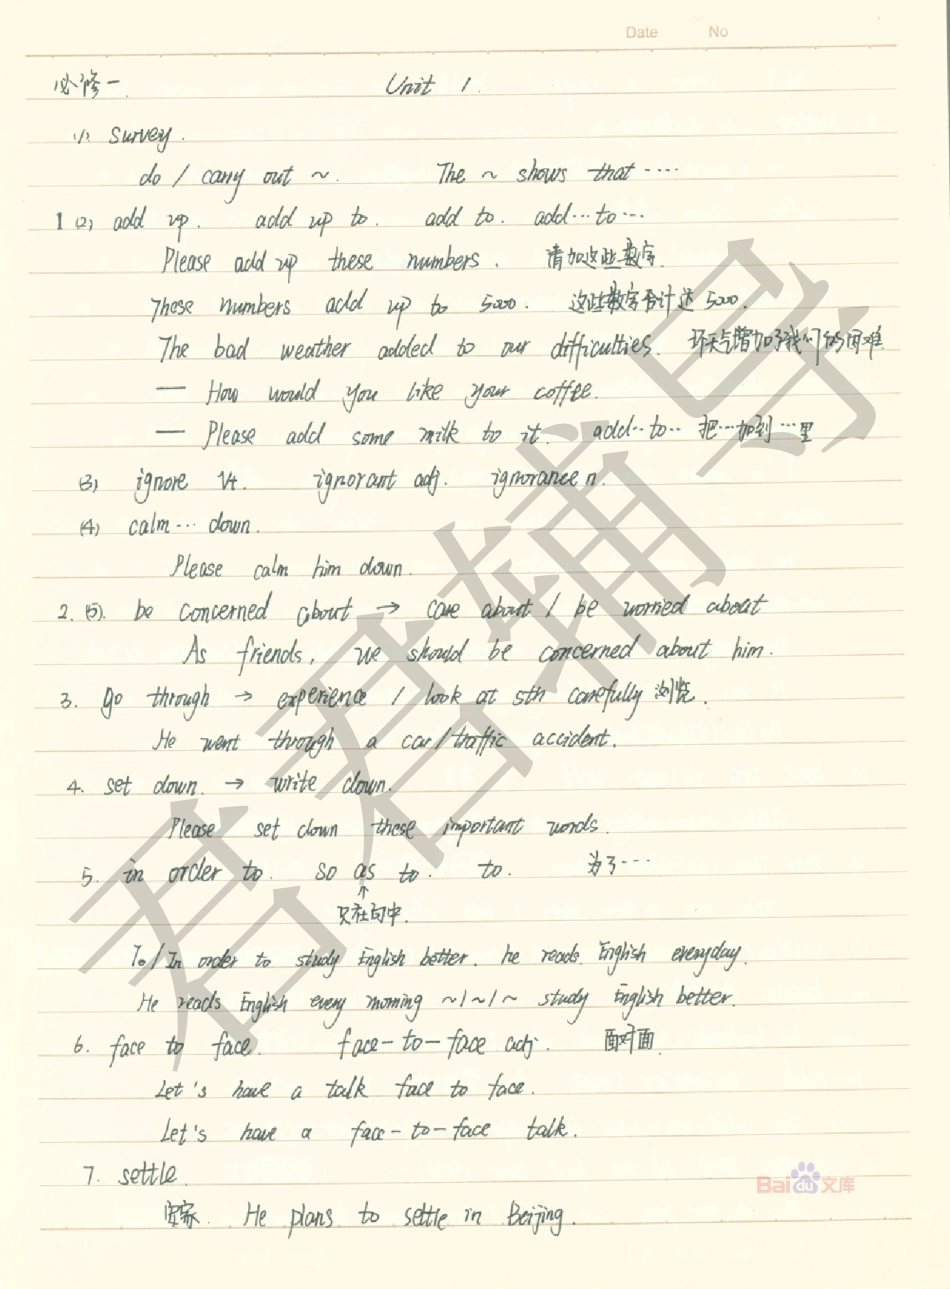 Date No
必修一. Unit 1.
(1). survey.
do / carry out ~. The ~ shows that ····
1 (2) add up. add up to. add to. add···to···
Please add up these numbers. 请加这些数字.
These numbers add up to 5000. 这些数字合计达5000.
The bad weather added to our difficulties. 坏天气增加了我们的困难
— How would you like your coffee.
— Please add some milk to it. add···to··· 把···加到···里
(3) ignore vt. ignorant adj. ignorance n.
(4) calm··· down.
Please calm him down.
2. (5). be concerned about → care about / be worried about
As friends, we should be concerned about him.
3. go through → experience / look at sth carefully 浏览.
He went through a car/traffic accident.
4. set down. → write down.
Please set down these important words.
5. in order to. so as to. to. 为了···
↑
只在句中.
To/In order to study English better. he reads English everyday.
He reads English every morning ~/~/~ study English better.
6. face to face. face-to-face adj. 面对面.
Let's have a talk face to face.
Let's have a face-to-face talk.
7. settle.
安家. He plans to settle in Beijing.
君君辅导
Baidu文库